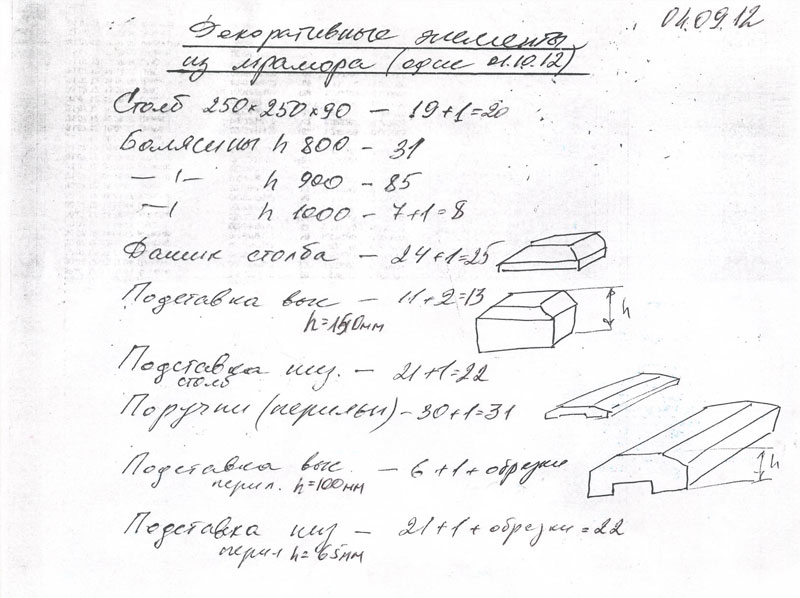 01.09.12
Декоративные элементы
из мрамора (офис 01.10.12)
Столб 250×250×90 – 19+1=20
Балясины h 800 – 31
—"— h 900 – 85
—"— h 1000 – 7+1=8
Башмик столба – 24+1=25
Подставка выс – 11+2=13
h=150мм
h
Подставка низ. – 21+1=22
столб
Поручни (перилы) – 30+1=31
Подставка выс. – 6+1+обрезки
перил. h=100мм
h
Подставка низ – 21+1+обрезки=22
перил h=65мм